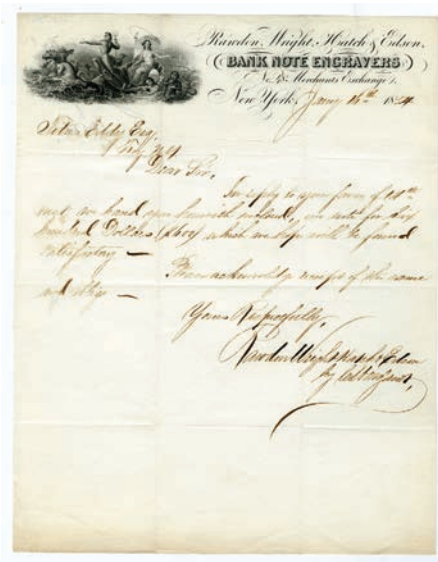 Rawdon, Wright, Hatch & Edson,
BANK NOTE ENGRAVERS
No. 48 Merchants Exchange,
New York, Jany 12th 1854
Titus Eddy Esq.
Troy N.Y.
Dear Sir,
In reply to your favor of 10th
inst. we hand you herewith enclosed, our note for Six
hundred Dollars ($600) which we hope will be found
satisfactory —
Please acknowledge receipt of the same
and oblige —
Yours Respectfully,
Rawdon Wright Hatch & Edson
by